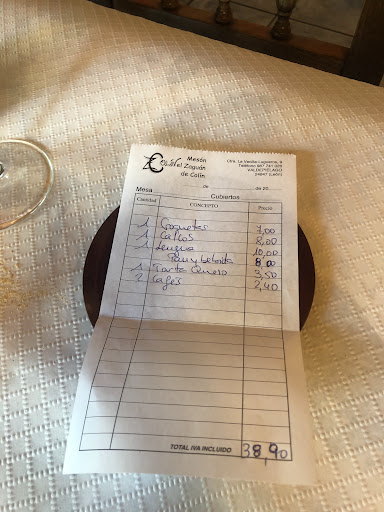 Mesón
el Zaguán
de Colín
Ctra. La Vecilla-Lugueros, 9
Teléfono 987 741 009
VALDEPIÉLAGO
24847 (León)
Mesa de de 20
Cubiertos
Cantidad CONCEPTO Precio
1 Croquetas 7,00
1 Callos 8,00
1 Lengua 10,00
Pan y bebida 8,00
1 Tarta Queso 3,50
2 Cafés 2,40
TOTAL IVA INCLUIDO 38,90